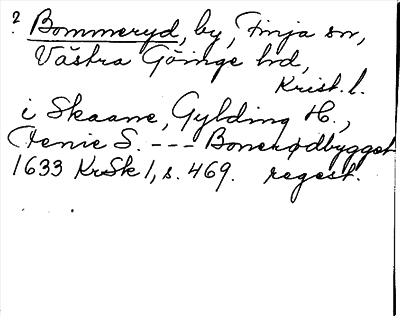 ? Bommeryd, by, Finja sn,
Västra Göinge hd,
Krist. l.
i Skaane, Gylding H.,
Jenie S. --- Bonnerødbygget
1633 KrSk 1, s. 469. regest.